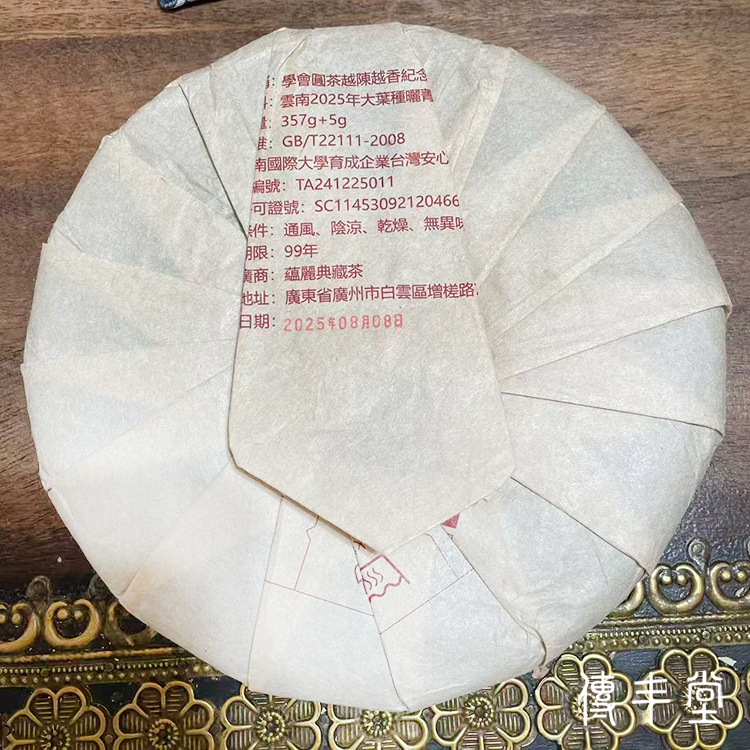 學會圓茶越陳越香紀念
雲南2025年大葉種曬
357g+5g
GB/T22111-2008
南國際大學育成企業台灣安心
編號：TA241225011
可證號：SC11453092120466
條件：通風、陰涼、乾燥、無異味
期限：99年
廠商：蘊麗典藏茶
地址：廣東省廣州市白雲區增槎路
日期：2025年08月08日
傳手堂